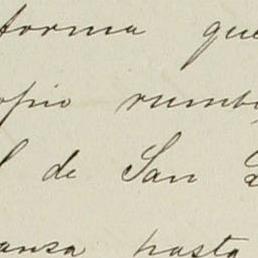 forma que
opio rumb
l de San
anza hasta